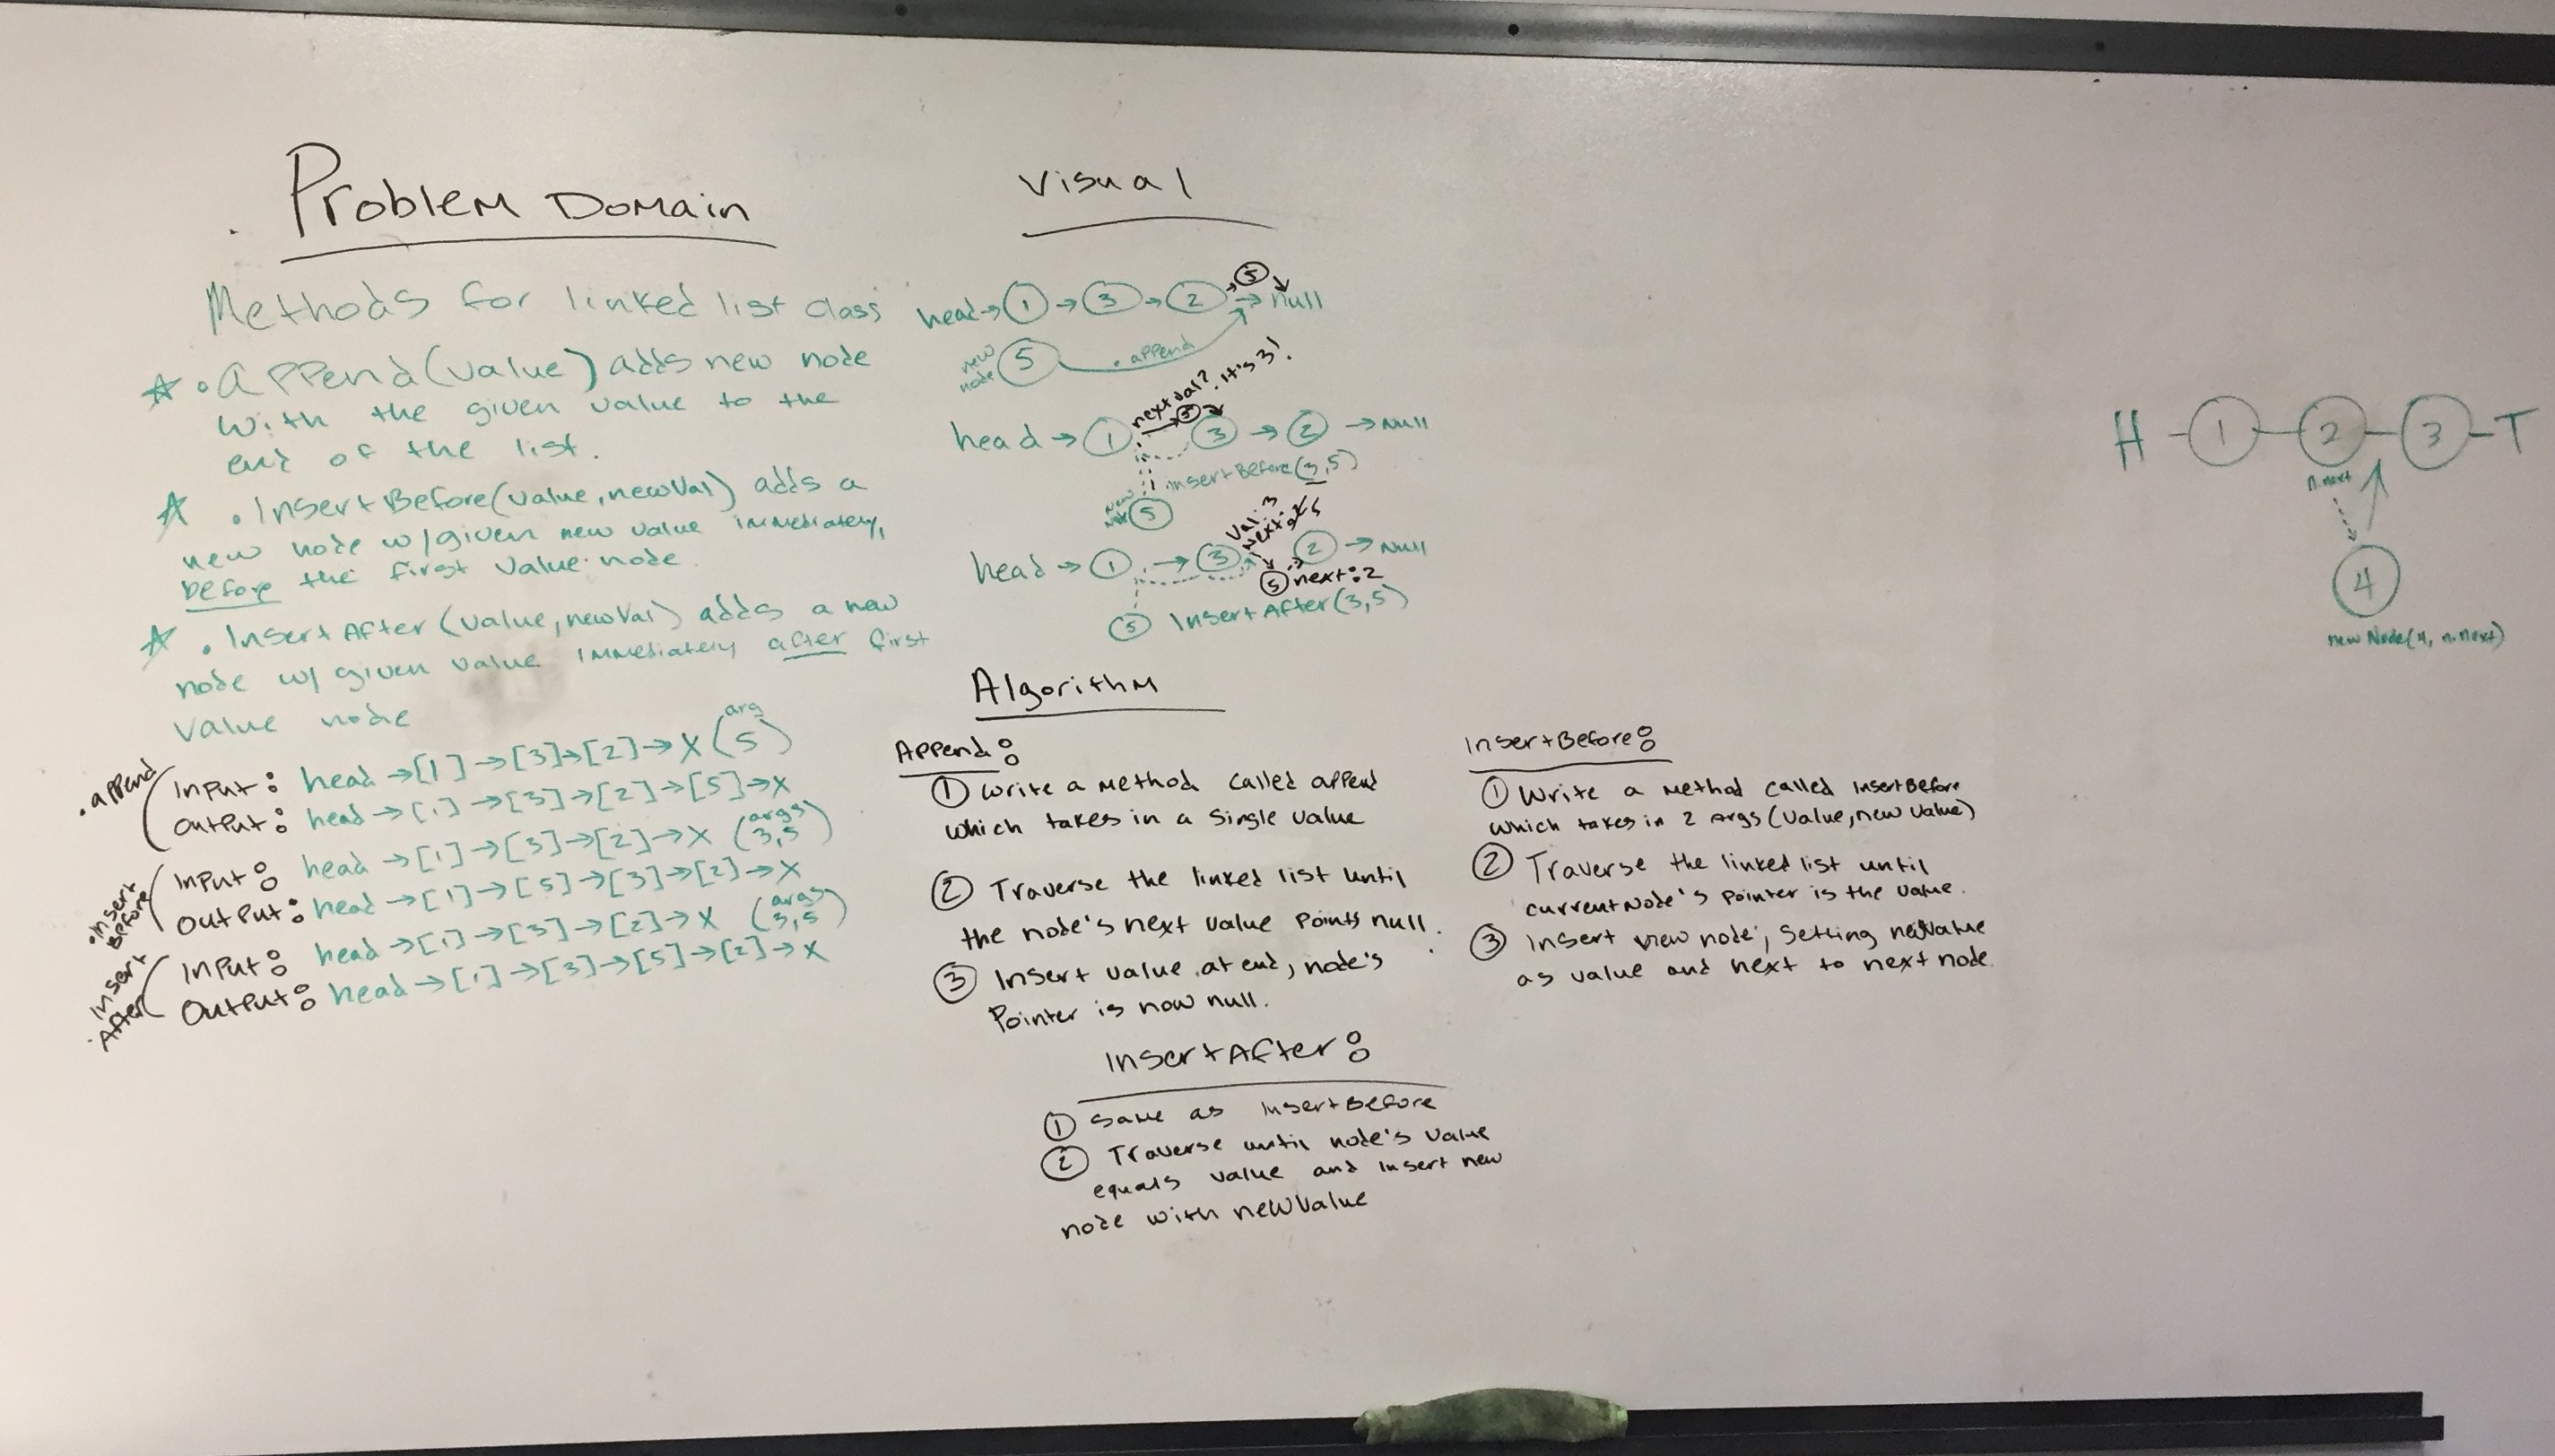 Problem Domain
Methods for linked list class
☆ .append(value) adds new node
with the given value to the
end of the list.
☆ .InsertBefore(value, newVal) adds a
new node w/given new value immediately,
before the first value node
☆ .InsertAfter(value, newVal) adds a new
node w/ given value immediately after first
value node
.append
Input: head → [1] → [3] → [2] → X (5)
arg
Output: head → [1] → [3] → [2] → [5] → X
.insert Before
Input: head → [1] → [3] → [2] → X (3,5)
args
Output: head → [1] → [5] → [3] → [2] → X
.Insert After
Input: head → [1] → [3] → [2] → X (3,5)
args
Output: head → [1] → [3] → [5] → [2] → X
Visual
head → 1 → 3 → 2 → null
5
new node 5 .append
next val? It's 3!
head → 1 5 3 → 2 → Null
insertBefore(3,5)
new 5
val: 3
next: 5
head → 1 → 3 2 → Null
5 next: 2
5 InsertAfter(3,5)
Algorithm
Append:
① Write a method called append
which takes in a single value
② Traverse the linked list until
the node's next value points null.
③ Insert value at end, node's
Pointer is now null.
InsertBefore:
① Write a method called InsertBefore
which takes in 2 Args (value, new value)
② Traverse the linked list until
currentNode's pointer is the value.
③ Insert new node, setting newValue
as value and next to next node.
InsertAfter:
① Same as InsertBefore
② Traverse until node's value
equals value and insert new
node with newValue
H - 1 - 2 - 3 - T
n.next
4
new Node(4, n.next)